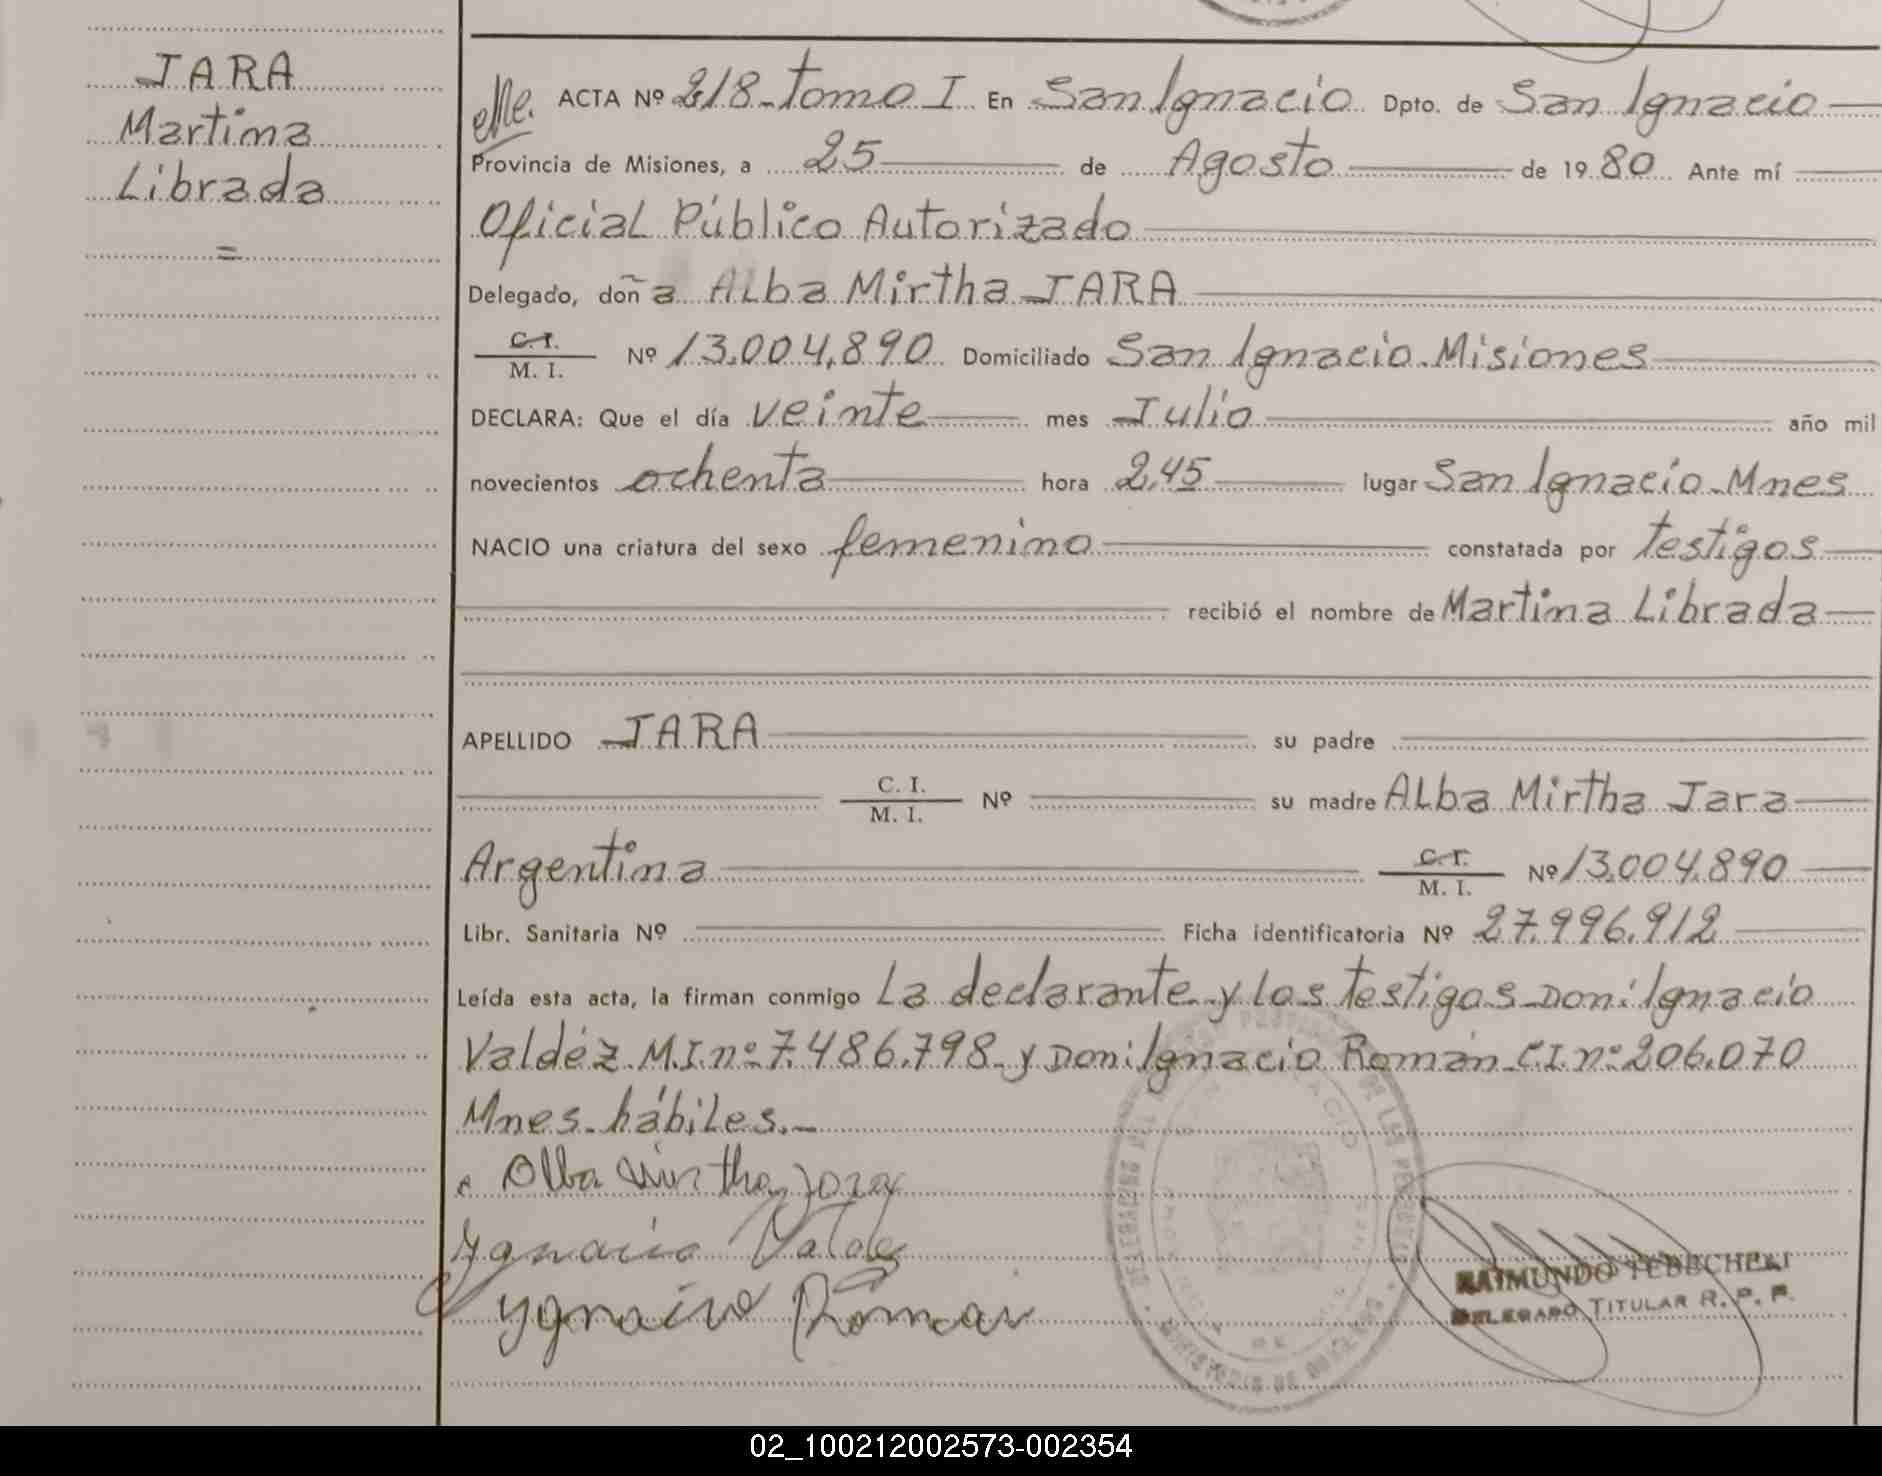 JARA
Martina
Librada
=
ACTA Nº 218 - Tomo I En San Ignacio Dpto. de San Ignacio
Provincia de Misiones, a 25 de Agosto de 1980 Ante mí
Oficial Público Autorizado
Delegado, doña Alba Mirtha JARA
C.I.
M. I. Nº 13.004.890 Domiciliado San Ignacio. Misiones
DECLARA: Que el día veinte mes Julio año mil
novecientos ochenta hora 2,45 lugar San Ignacio - Mnes
NACIO una criatura del sexo femenino constatada por testigos
recibió el nombre de Martina Librada
APELLIDO JARA su padre
C. I.
M. I. Nº su madre Alba Mirtha Jara
Argentina C.I.
M. I. Nº 13.004.890
Libr. Sanitaria Nº Ficha identificatoria Nº 27.996.912
Leída esta acta, la firman conmigo La declarante y los testigos - Don: Ignacio
Valdéz. M.I.nº: 7.486.798 - y Don: Ignacio Román - C.I.nº: 206.070
Mnes - hábiles. -
Alba Mirtha Jara
Ygnacio Valdez
Ygnacio Roman
MINISTERIO DE GOBIERNO
RAIMUNDO
DELEGADO TITULAR R. P. P.
02_100212002573-002354